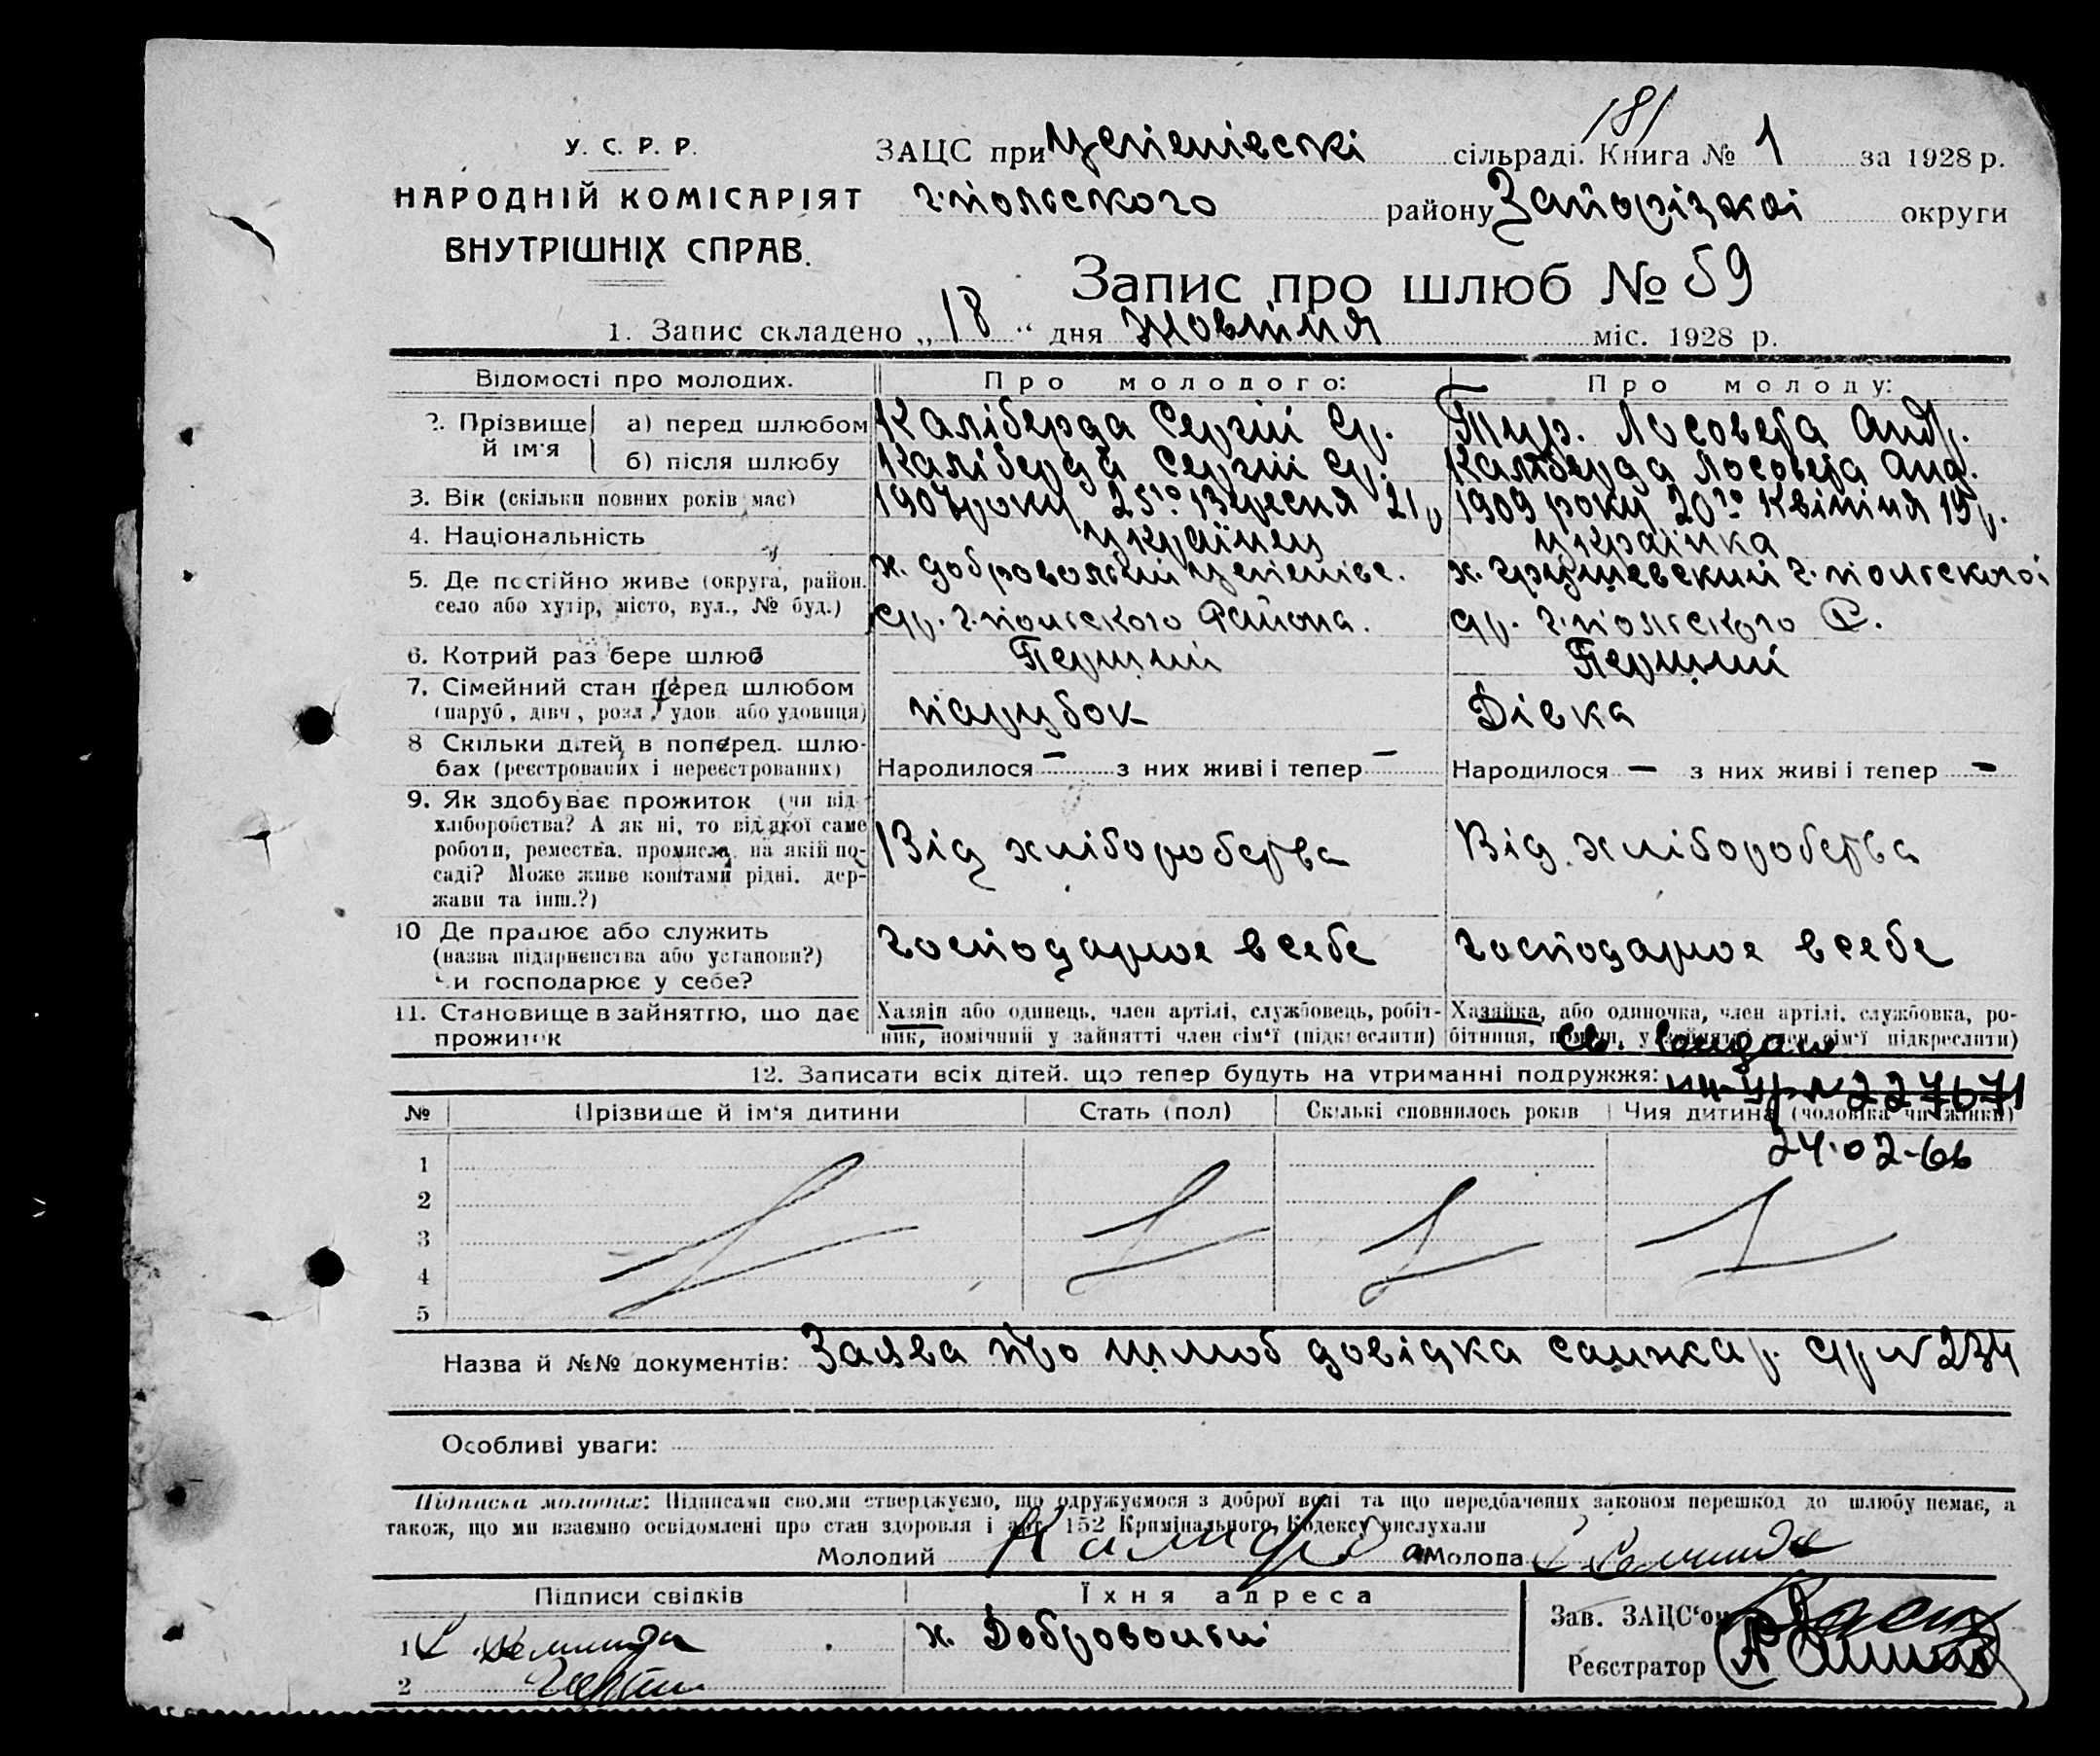 181
У. С. Р. Р.
НАРОДНІЙ КОМІСАРІЯТ
ВНУТРІШНІХ СПРАВ.
ЗАЦС при сільраді. Книга № 1 за 1928 р.
г.польского району Запорізкої округи
Запис про шлюб № 59
1. Запис складено „18“ дня жовтня міс. 1928 р.
Відомості про молодих. Про молодого: Про молоду:
2. Прізвище й ім'я а) перед шлюбом Каліберда Сергій Гр. Андр.
б) після шлюбу Каліберда Сергій Гр. Каліберда Анд.
3. Вік (скільки повних років має) 1907 року 25го Вересня 21 р 1909 року 20го Квітня 19 р.
4. Національність українец українка
5. Де постійно живе (округа, район. село або хутір, місто, вул., № буд.) х. добровольский х. грушевский г.польскоі
ср. г.польского Района. ср. г.польского Р.
6. Котрий раз бере шлюб Перший Перший
7. Сімейний стан перед шлюбом парубок Дівка
(паруб, дівч, розл, удов. або удовиця)
8 Скільки дітей в поперед. шлю-
бах (реєстрованих і нереєстрованих) Народилося — з них живі і тепер — Народилося — з них живі і тепер —
9. Як здобуває прожиток (чи від
хліборобства? А як ні, то від якої саме
роботи, ремества. промисла, на якій по-
саді? Може живе коштами рідні. дер-
жави та інш.?)
Від хліборобства Від хліборобства
10 Де працює або служить
(назва підприємства або установи?)
Чи господарює у себе?
господарює в себе господарює в себе
11. Становище в зайняттю, що дає
прожиток
Хазяїн або одинець, член артілі, службовець, робіт-
ник, помічний у зайнятті член сім'ї (підкреслити)
Хазяйка, або одиночка, член артілі, службовка, ро-
бітниця, поміч, у зайнятті член сім'ї підкреслити)
12. Записати всіх дітей. що тепер будуть на утриманні подружжя:
227671
№ Прізвище й ім'я дитини Стать (пол) Скількі сповнилось років Чия дитина (чоловіка чи жінки)
24.02-66
1
2
3
4
5
Назва й №№ документів: Заява про шлюб довідка ср № 234
Особливі уваги:
Підписка молодих: Підписами своїми стверджуємо, що одружуємося з доброї волі та що передбачених законом перешкод до шлюбу немає, а
також, що ми взаємно освідомлені про стан здоровля і арт. 152 Кримінального Кодексу вислухали
Молодий Молода
Підписи свідків Їхня адреса
1 х. Добровольскі
2
Зав. ЗАЦС'ом
Реєстратор